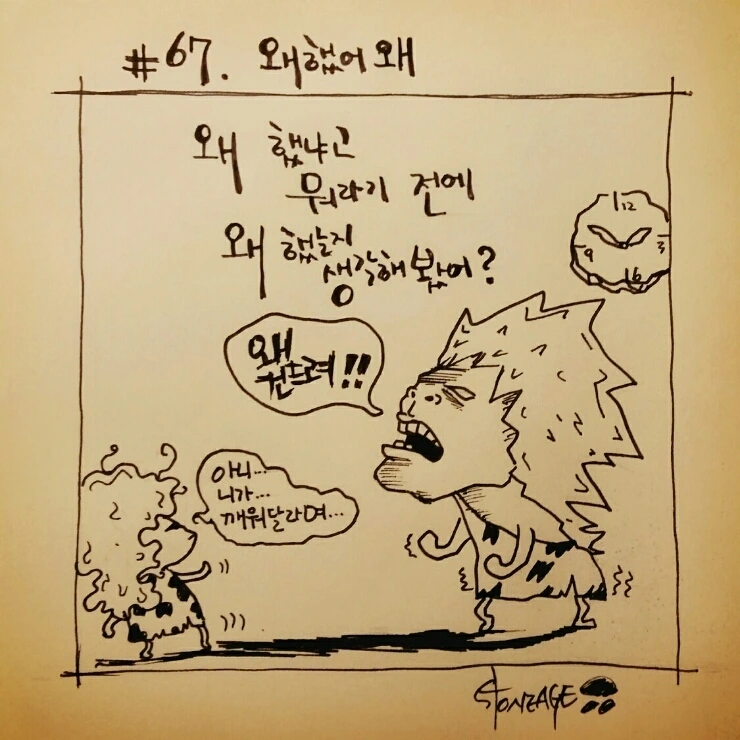 #67. 왜했어 왜
왜 했냐고
뭐라기 전에
왜 했는지
생각해봤어?
12
9
3
6
왜
!!
아니...
니가...
깨워달라며...
STONEAGE